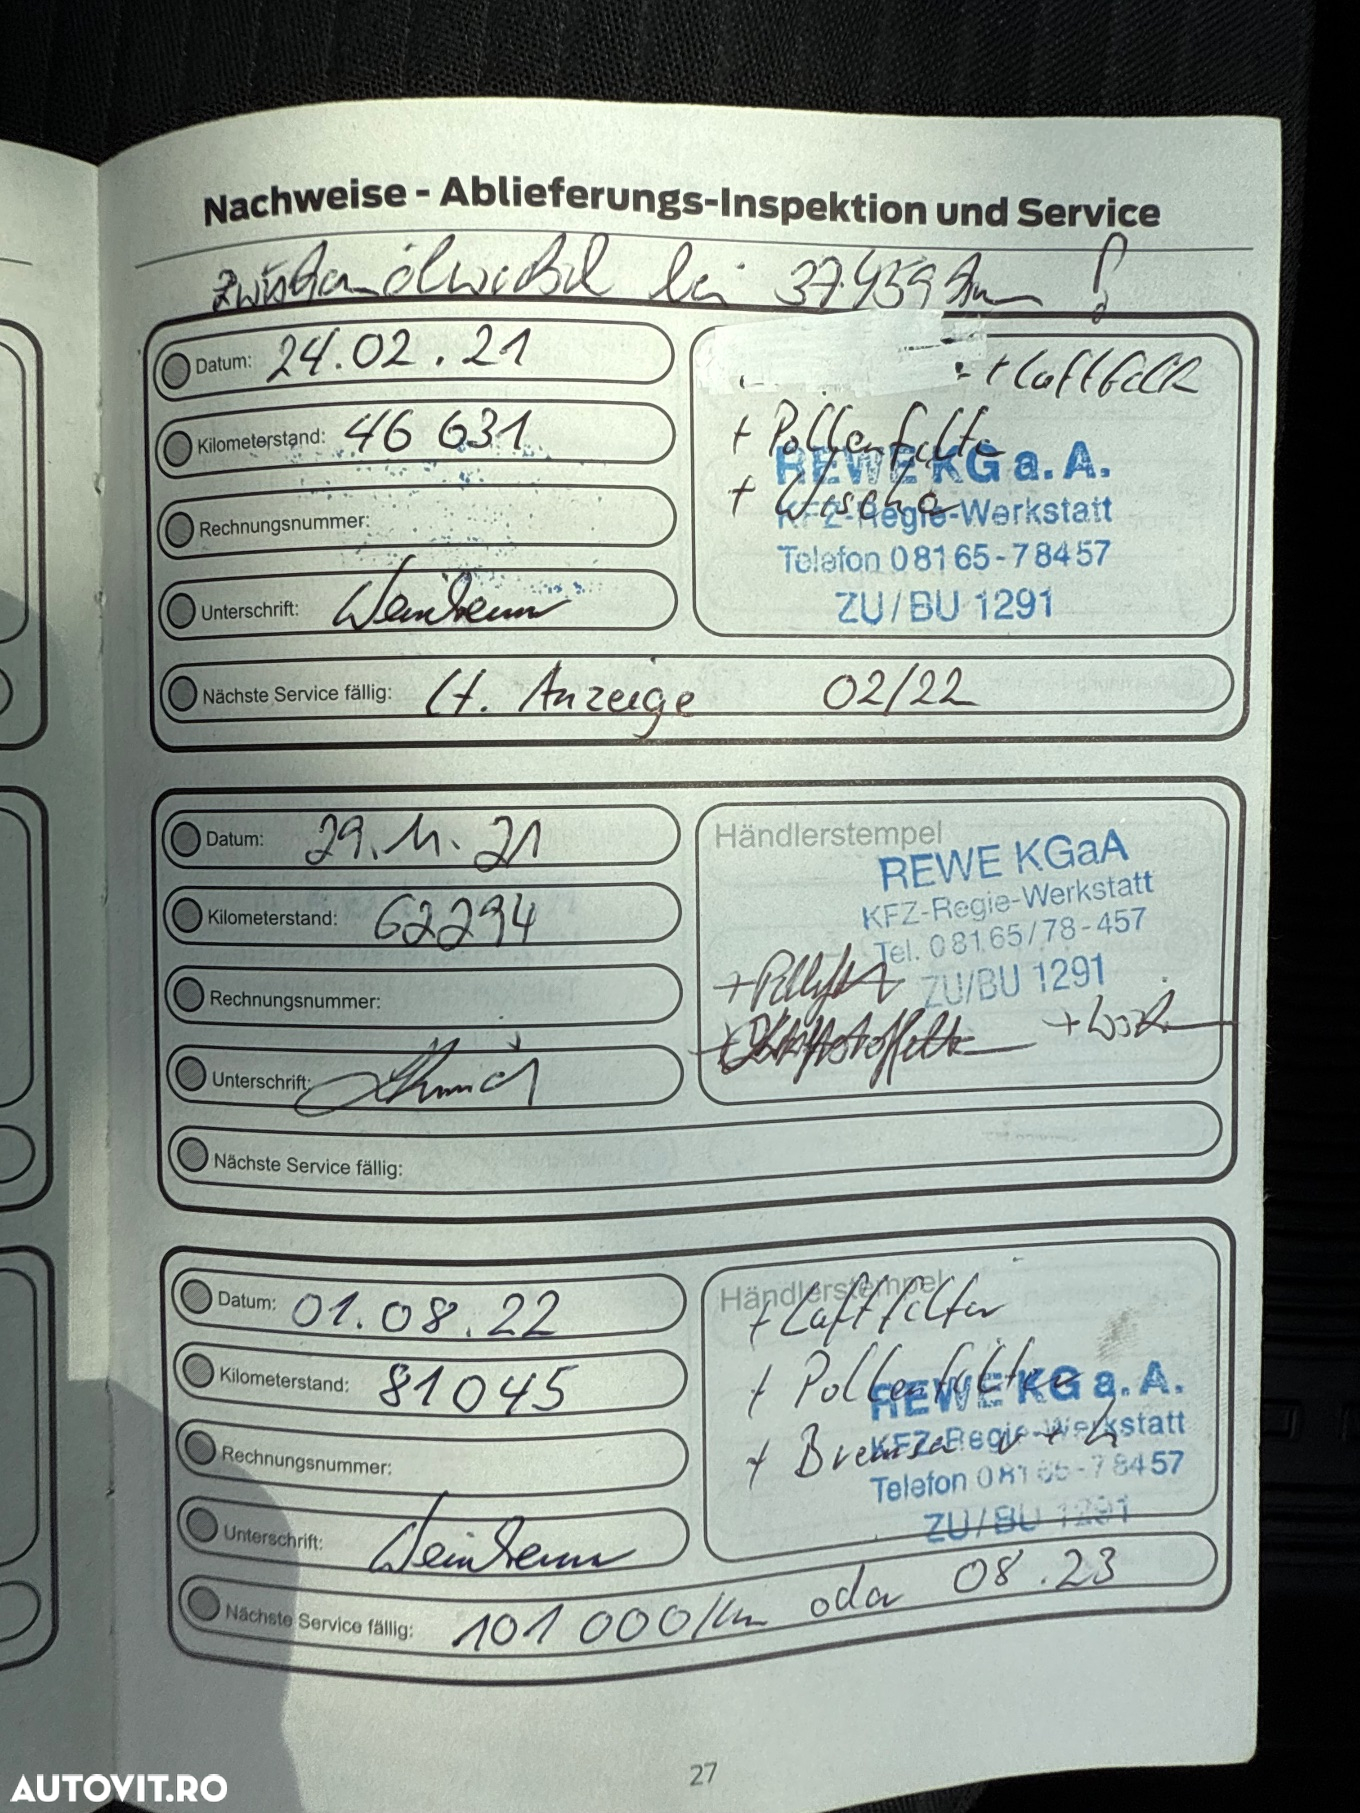 Nachweise - Ablieferungs-Inspektion und Service
Zwischenölwechsel bei 37.459 Km !
Datum: 24.02.21
Kilometerstand: 46 631
Rechnungsnummer:
Unterschrift:
Nächste Service fällig: lt. Anzeige 02/22
+ Luftfilter
+ Pollenfilter
+ Wischer
REWE KG a. A.
KFZ-Regie-Werkstatt
Telefon 0 81 65 - 7 84 57
ZU / BU 1291
Datum: 29.11.21
Kilometerstand: 62294
Rechnungsnummer:
Unterschrift: Schmid
Nächste Service fällig:
Händlerstempel
REWE KGaA
KFZ-Regie-Werkstatt
Tel. 0 81 65 / 78 - 457
ZU/BU 1291
Datum: 01.08.22
Kilometerstand: 81045
Rechnungsnummer:
Unterschrift:
Nächste Service fällig: 101 000/Km oder 08.23
Händlerstempel
+ Luftfilter
+ Pollenfilter
+ Bremse v + h
REWE KG a. A.
KFZ-Regie-Werkstatt
Telefon 0 81 65 - 7 84 57
ZU / BU 1291
27
AUTOVIT.RO